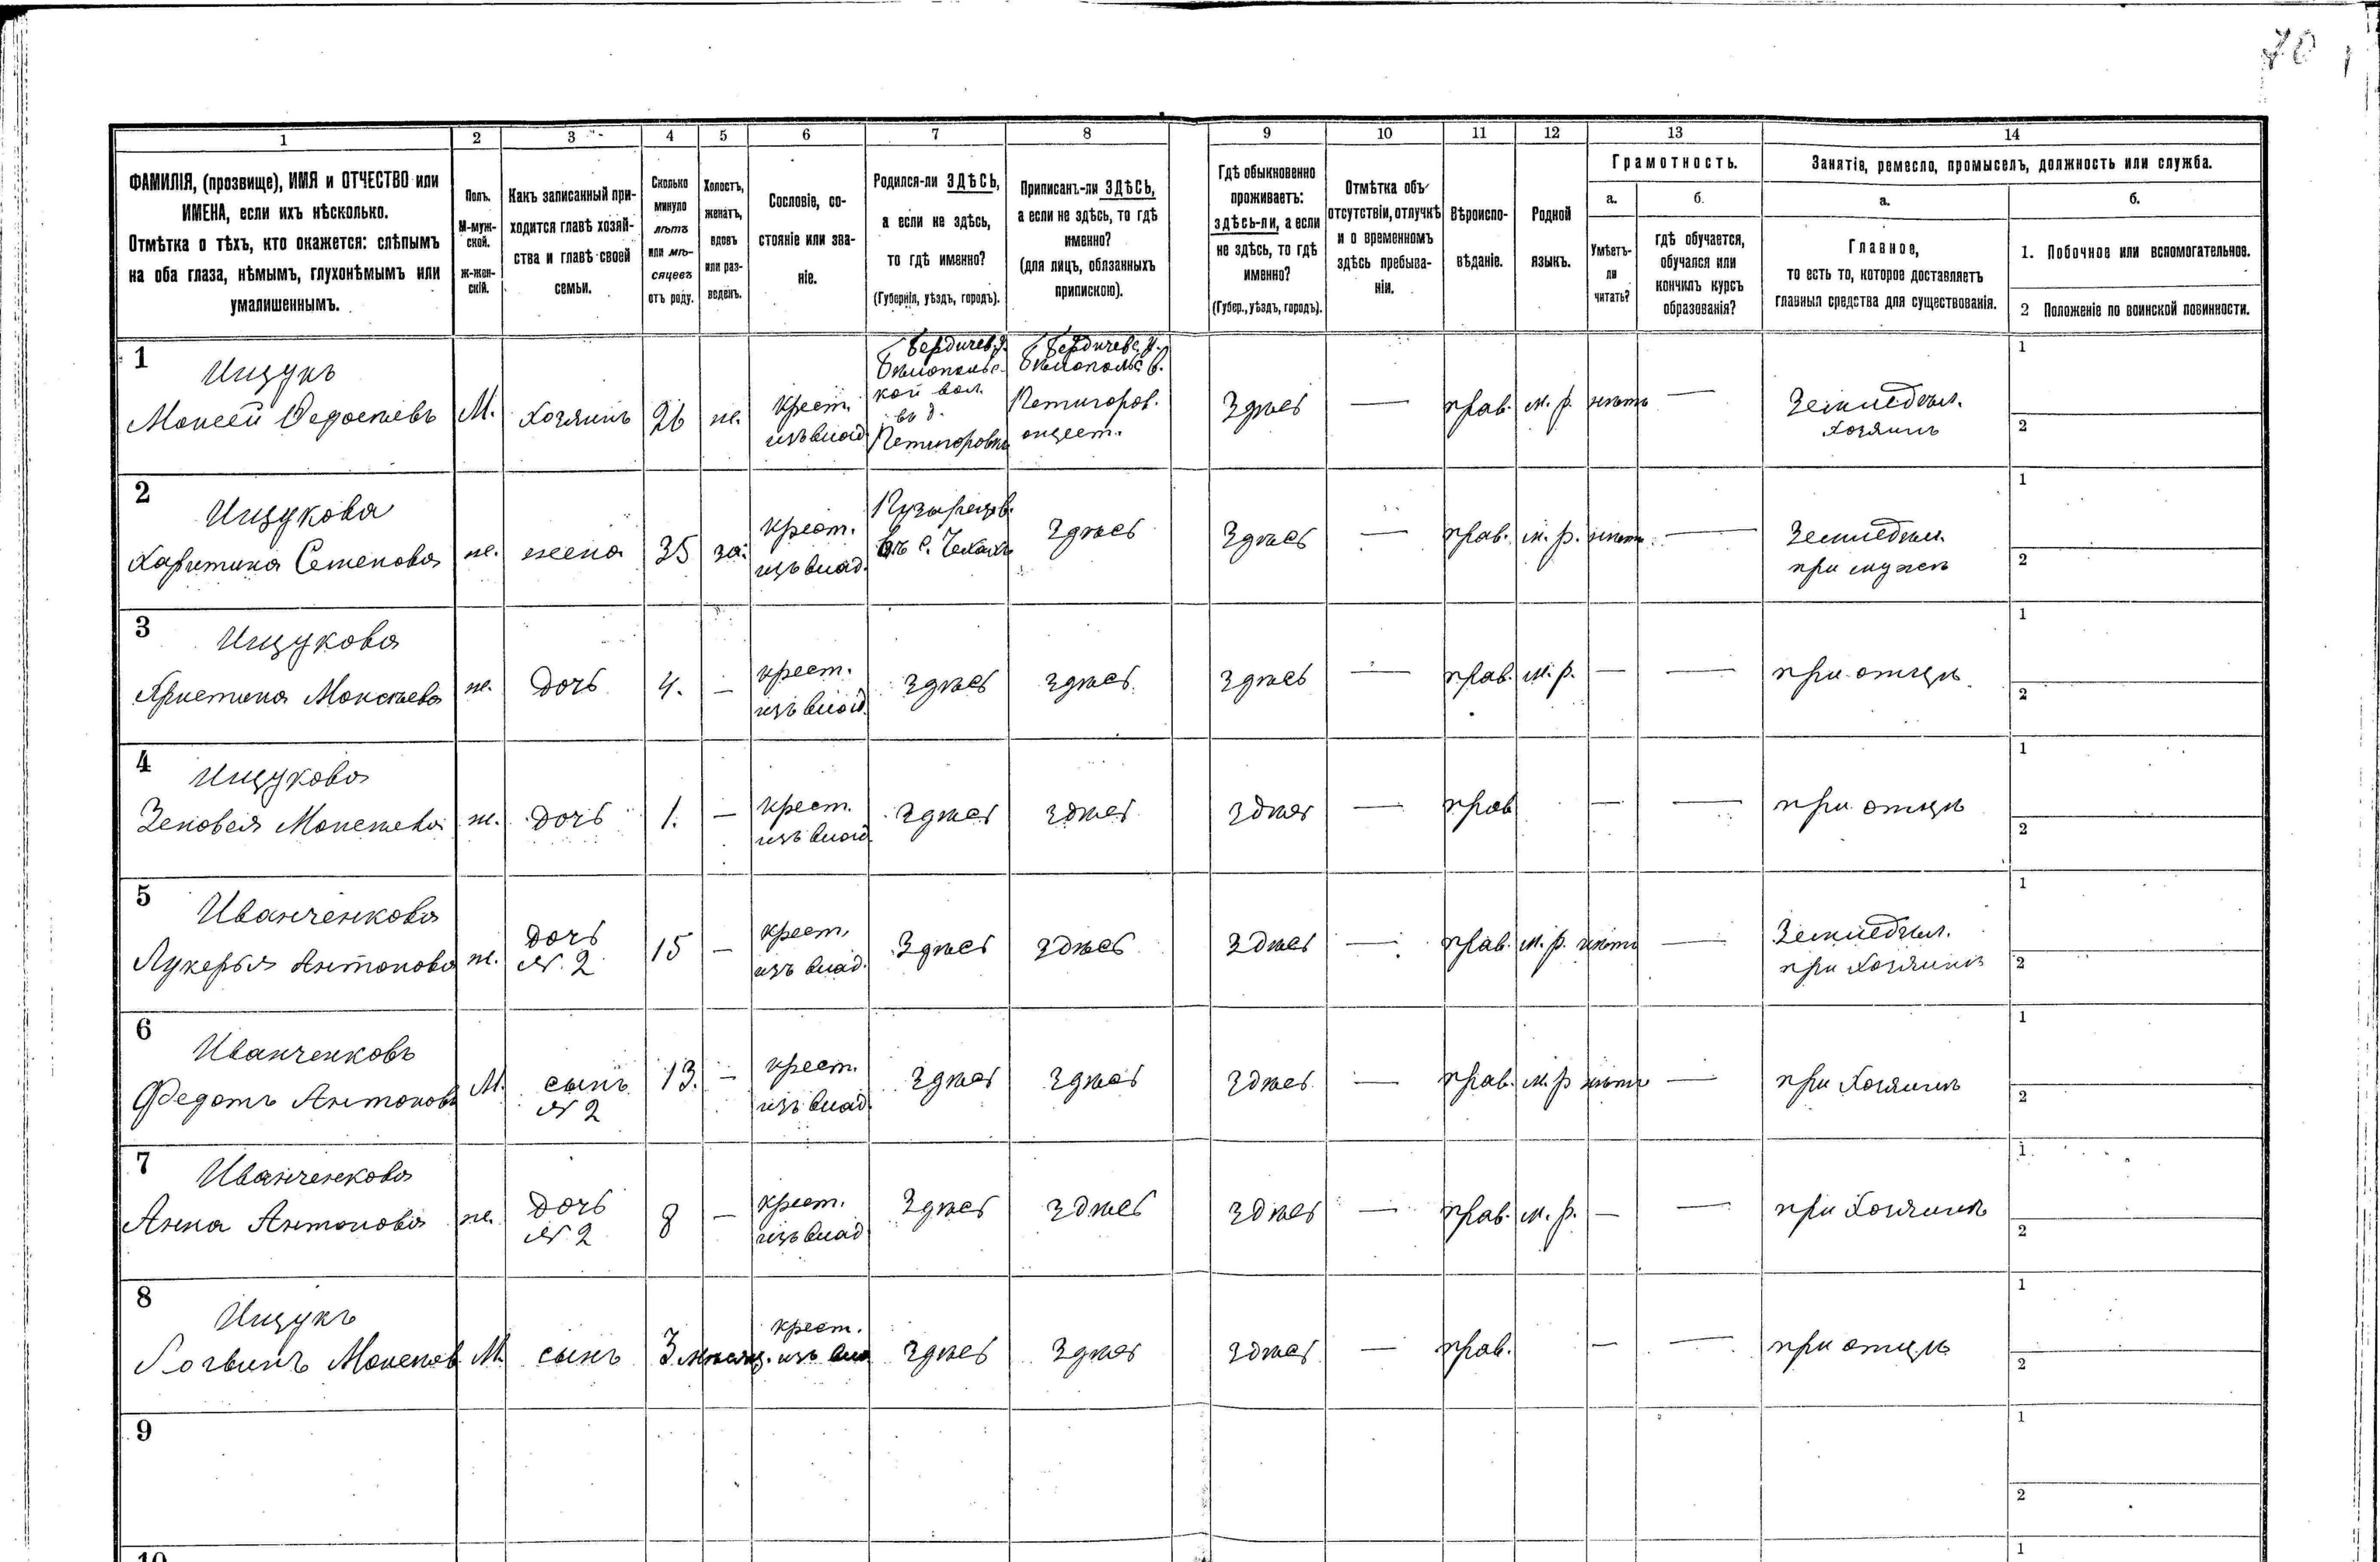 70
1 2 3 4 5 6 7 8 9 10 11 12 13 14
ФАМИЛІЯ, (прозвище), ИМЯ и ОТЧЕСТВО или
ИМЕНА, если ихъ нѣсколько.
Отмѣтка о тѣхъ, кто окажется: слѣпымъ
на оба глаза, нѣмымъ, глухонѣмымъ или
умалишеннымъ.
Полъ.
М-муж-
ской.
ж-жен-
скій.
Какъ записанный при-
ходится главѣ хозяй-
ства и главѣ своей
семьи.
Сколько
минуло
лѣтъ
или мѣ-
сяцевъ
отъ роду.
Холостъ,
женатъ,
вдовъ
или раз-
веденъ.
Сословіе, со-
стояніе или зва-
ніе.
Родился-ли ЗДѢСЬ,
а если не здѣсь,
то гдѣ именно?
(Губернія, уѣздъ, городъ).
Приписанъ-ли ЗДѢСЬ,
а если не здѣсь, то гдѣ
именно?
(для лицъ, обязанныхъ
припискою).
Гдѣ обыкновенно
проживаетъ:
здѣсь-ли, а если
не здѣсь, то гдѣ
именно?
(Губер., уѣздъ, городъ).
Отмѣтка объ
отсутствіи, отлучкѣ
и о временномъ
здѣсь пребыва-
ніи.
Вѣроиспо-
вѣданіе.
Родной
языкъ.
Грамотность.
а.
Умѣетъ-
ли
читать?
б.
гдѣ обучается,
обучался или
кончилъ курсъ
образованія?
Занятія, ремесло, промыселъ, должность или служба.
а.
Главное,
то есть то, которое доставляетъ
главныя средства для существованія.
б.
1. Побочное или вспомогательное.
2 Положеніе по воинской повинности.
1
Ищукъ
Моисей Федосѣевъ
М.
хозяинъ
26
ж.
крест.
изъ влад.
Бердичев. у.
Бѣлопольс-
кой вол.
въ д.
Петигоровкѣ
Бердичевс. у.
Бѣлопольс. в.
Петигоров.
общест.
Здѣсь
—
прав.
м. р.
нѣтъ
—
Земледѣл.
хозяинъ
1
2
2
Ищукова
Харитина Семенова
ж.
жена
35
за.
крест.
изъ влад.
въ с.
Здѣсь
Здѣсь
—
прав.
м. р.
нѣтъ
—
Земледѣл.
при мужѣ
1
2
3
Ищукова
Христина Моисѣева
ж.
дочь
4.
—
крест.
изъ влад.
здѣсь
здѣсь
здѣсь
—
прав.
м. р.
—
—
при отцѣ
1
2
4
Ищукова
Зеновея Моисѣева
ж.
дочь
1.
—
крест.
изъ влад.
здѣсь
здѣсь
здѣсь
—
прав
—
—
при отцѣ
1
2
5
Иванченкова
Лукерья Антонова
ж.
дочь
№ 2
15
—
крест.
изъ влад.
Здѣсь
здѣсь
здѣсь
—
прав.
м. р.
нѣтъ
—
Земледѣл.
при хозяинѣ
1
2
6
Иванченковъ
Федотъ Антоновъ
М.
сынъ
№ 2
13.
—
крест.
изъ влад.
здѣсь
здѣсь
здѣсь
—
прав.
м. р
нѣтъ
—
при хозяинѣ
1
2
7
Иванченкова
Анна Антонова
ж.
дочь
№ 2
8
—
крест.
изъ влад
Здѣсь
здѣсь
здѣсь
—
прав.
м. р.
—
—
при хозяинѣ
1
2
8
Ищукъ
Логвинъ Моисеев
М.
сынъ
3 мѣсяц.
крест.
изъ вла
здѣсь
Здѣсь
здѣсь
—
прав.
—
—
при отцѣ
1
2
9
1
2
10
1